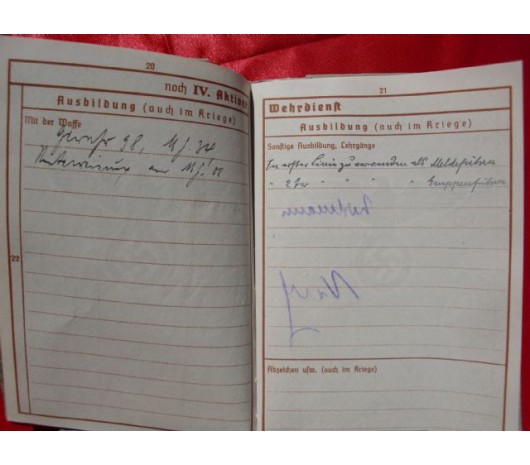 20
noch IV. Aktiver
Ausbildung (auch im Kriege)
Mit der Waffe
Gewehr 98, M.G. 34
Unterweisung am M.G.
22
21
Wehrdienst
Ausbildung (auch im Kriege)
Sonstige Ausbildung, Lehrgänge
In erster Linie zu verwenden als Meldeführer
" 2ter " " " " Gruppenführer
Abzeichen usw. (auch im Kriege)